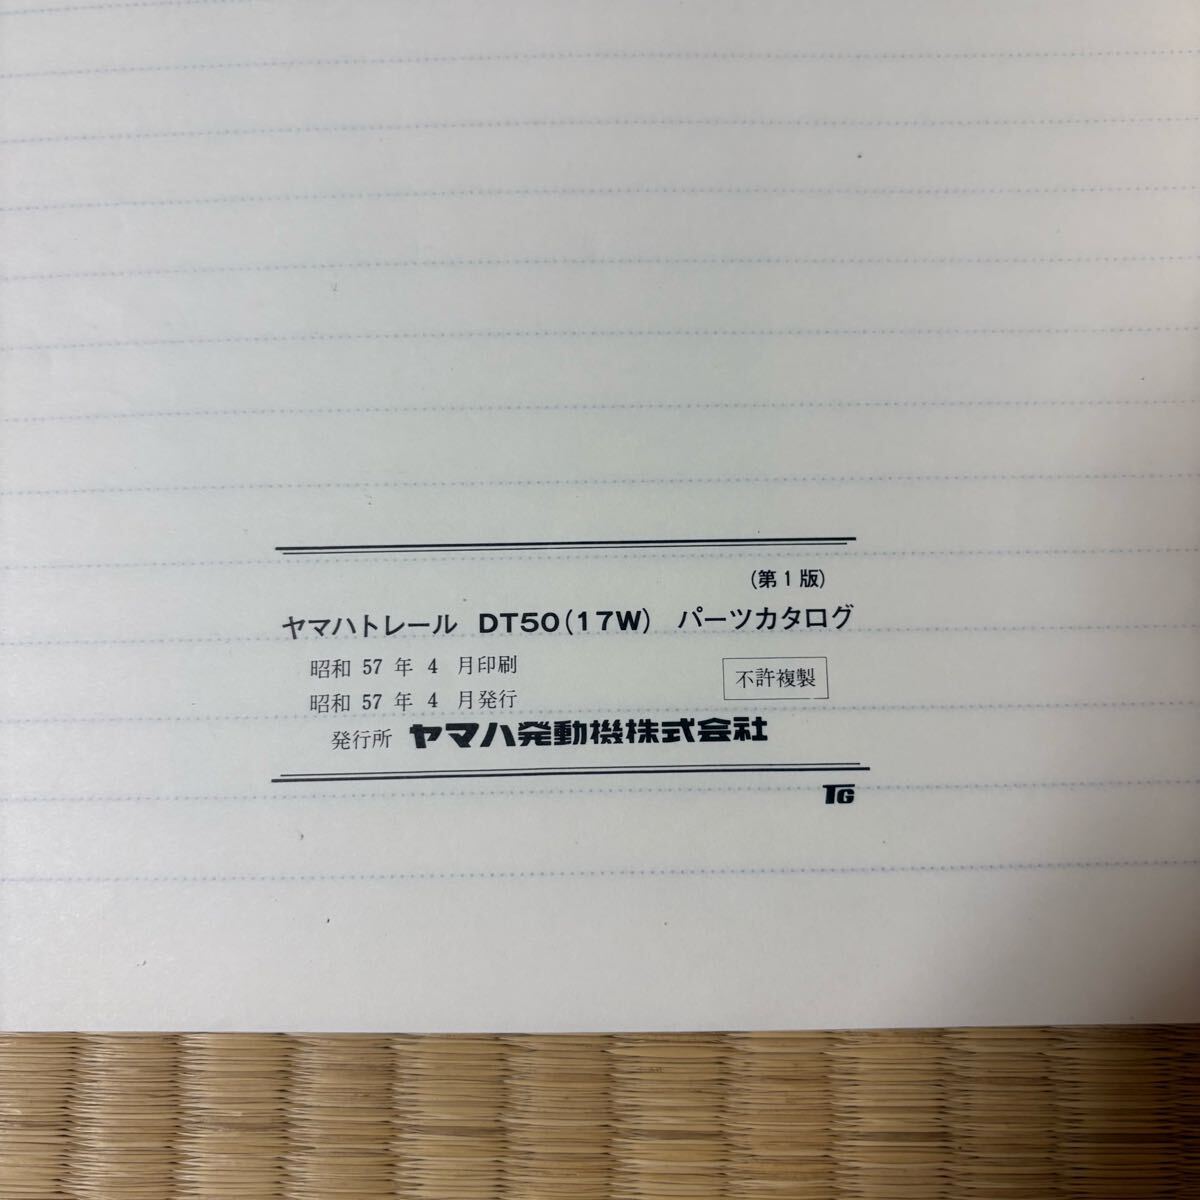 (第1版)
ヤマハトレール DT50(17W) パーツカタログ
昭和 57 年 4 月印刷
昭和 57 年 4 月発行
不許複製
発行所 ヤマハ発動機株式会社
TG